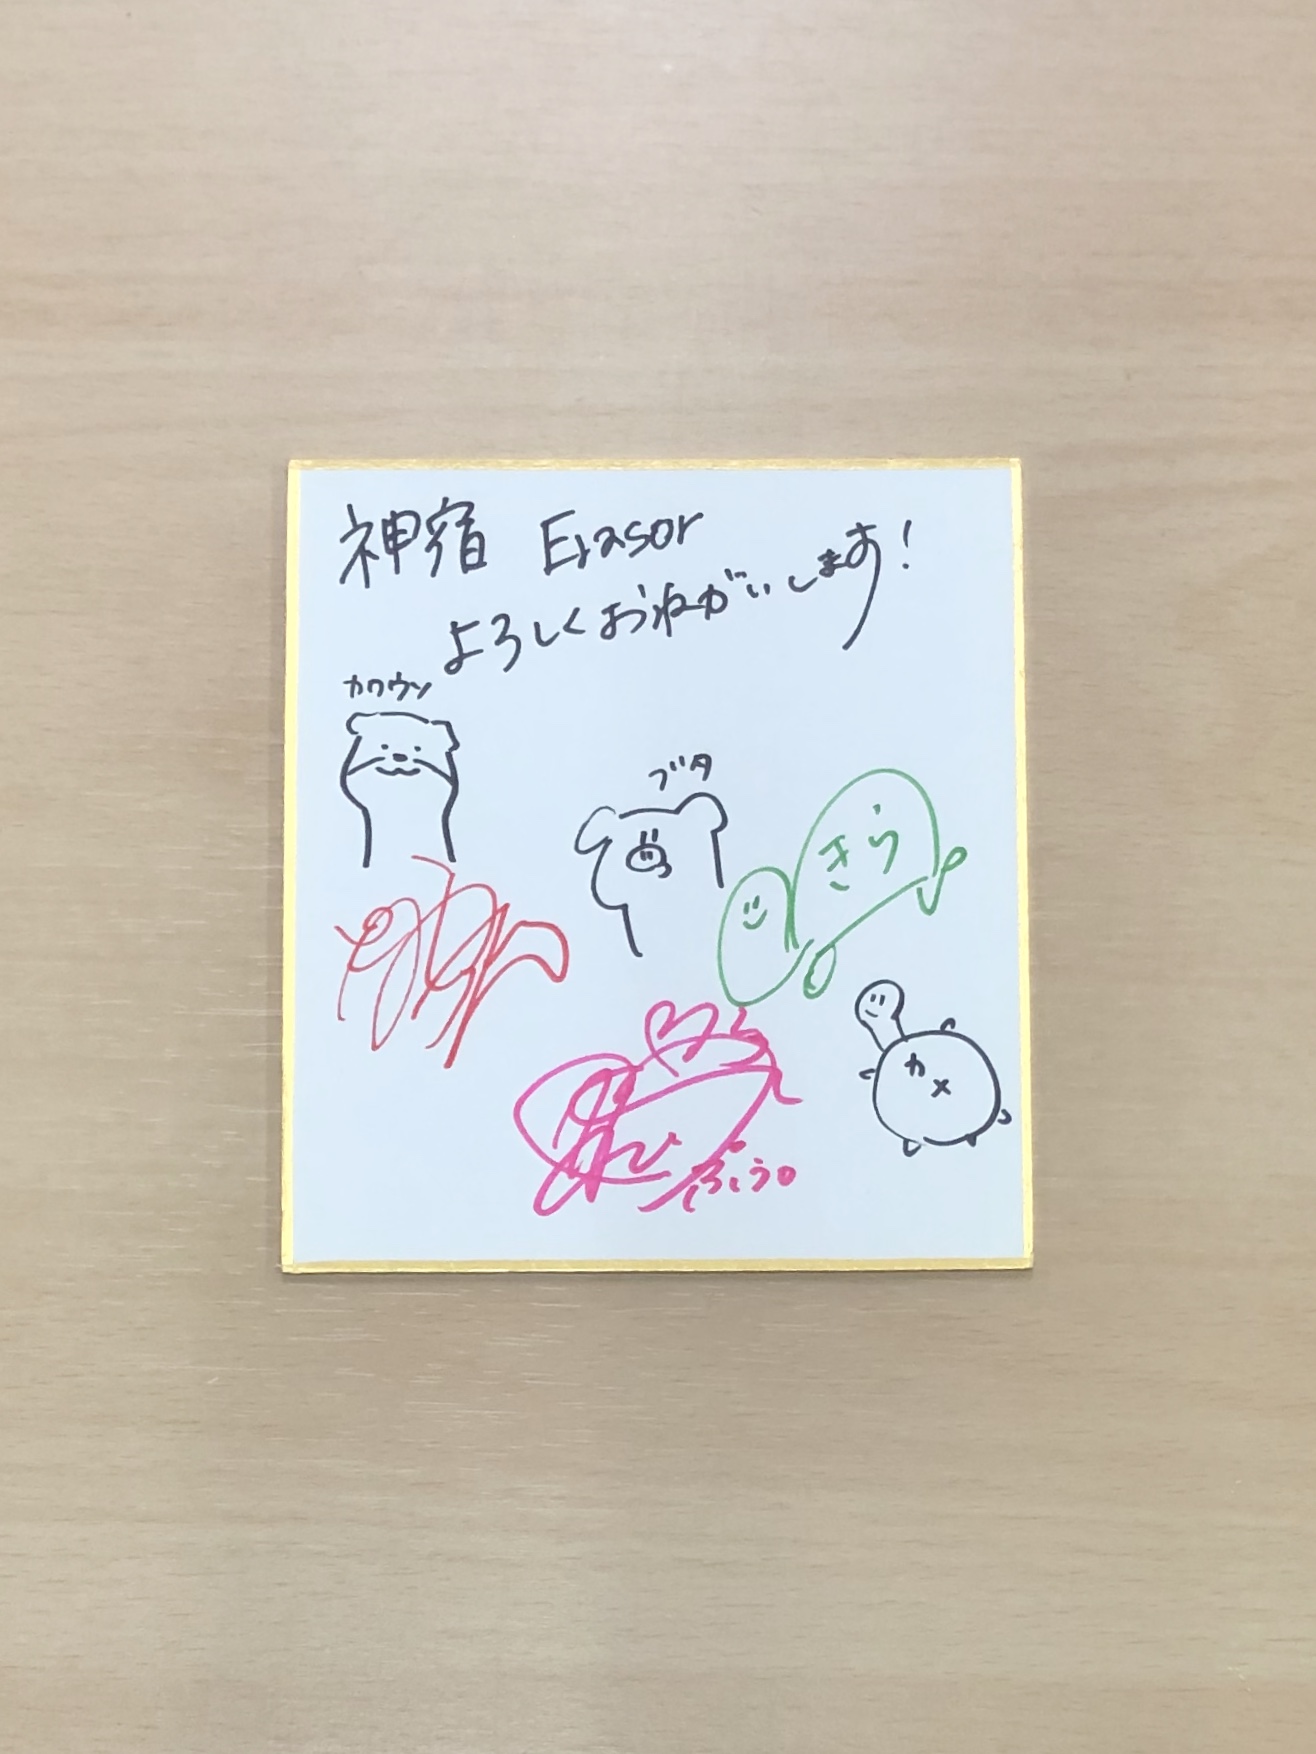 神宿 Erasor
よろしくおねがいします!
カワウソ
ブタ
きら
カメ
ぷぅ。